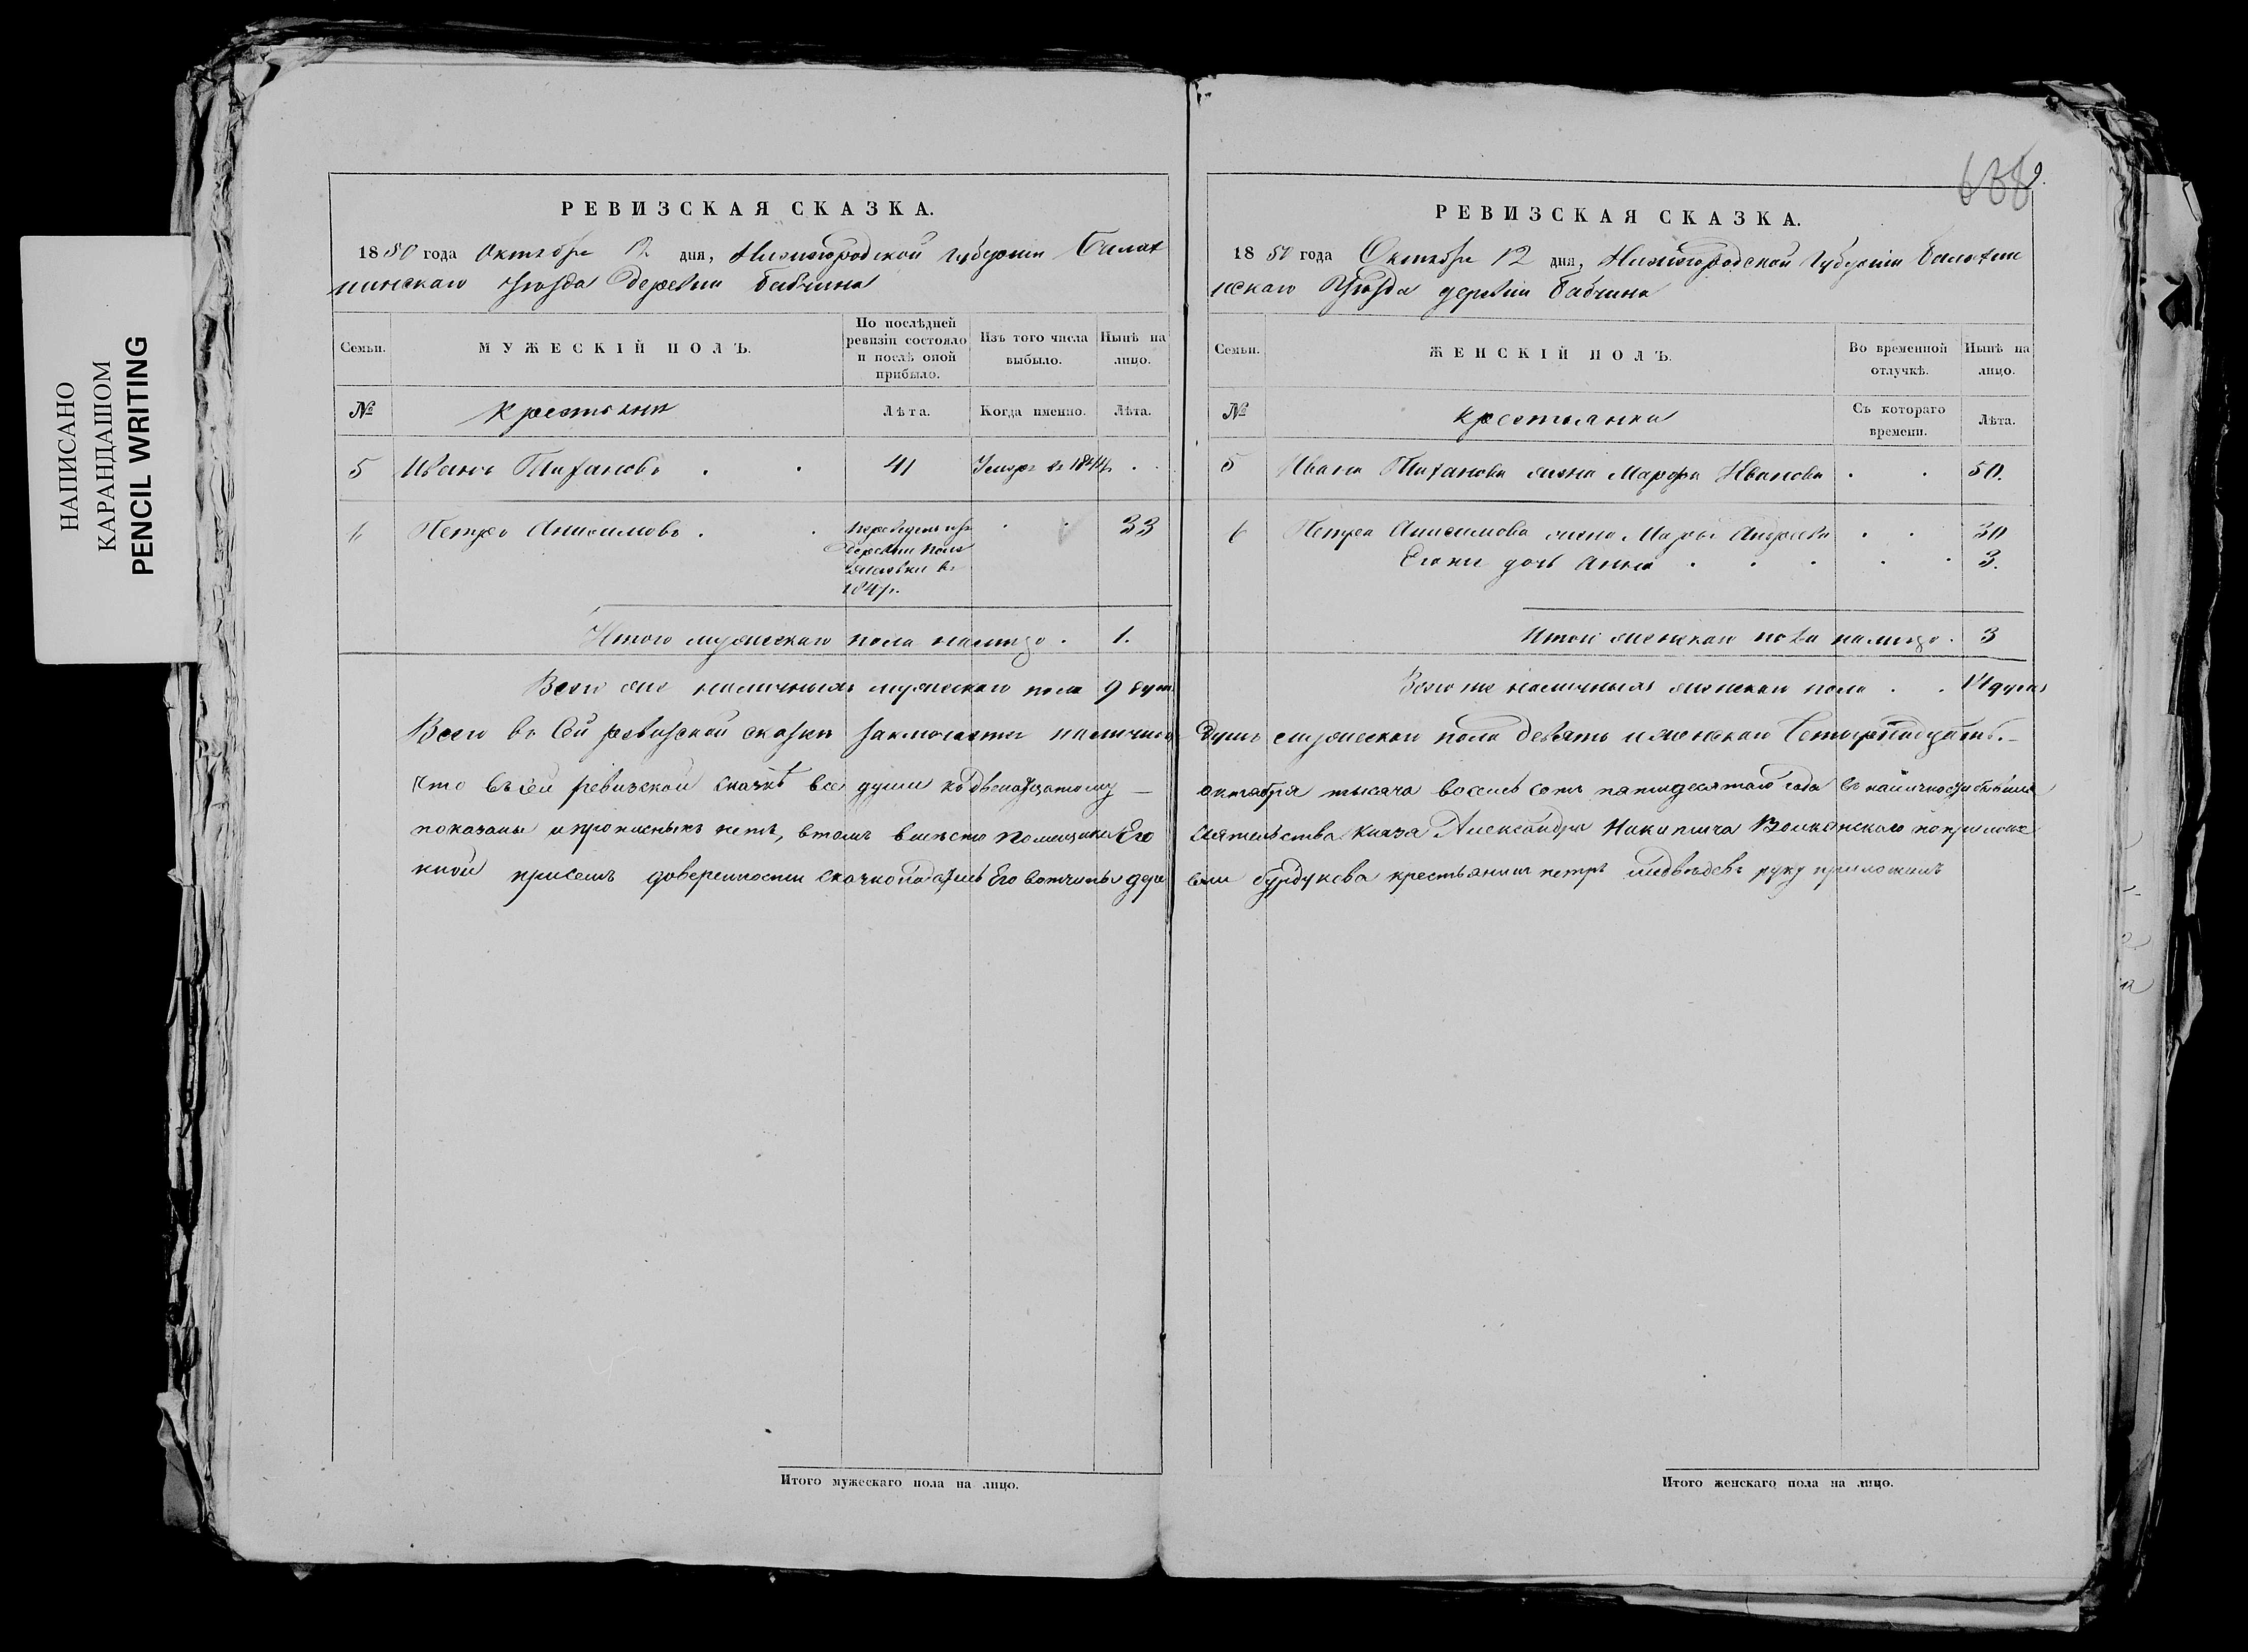 НАПИСАНО
КАРАНДАШОМ
PENCIL WRITING
РЕВИЗСКАЯ СКАЗКА.
1850 года Октября 12 дня, Нижегородской Губернии Балах
нинскаго Уезда Деревни Бабкина
Семьи. МУЖЕСКІЙ ПОЛЪ. По послѣдней ревизіи состояло и послѣ оной прибыло. Изъ того числа выбыло. Нынѣ на лицо.
№ Крестьяне Лѣта. Когда именно. Лѣта.
5 Иванъ Тихановъ . . 41 Умеръ въ 1844г. . .
6 Петръ Анисимовъ . . переведенъ изъ . . 33
деревни
въ
184
Итого мужескаго пола налицо . 1.
Всего же наличныхъ мужескаго пола 9 душ
Всего въ Сей ревизской сказке заключается налично
Что въ сей ревизской скаскѣ все души къ двенадцатому
показаны и прописныхъ нетъ, втомъ вместо помещика Его
нной присемъ доверенности скаску подалъ Его вотчины дере
Итого мужескаго пола на лицо.
6889.
РЕВИЗСКАЯ СКАЗКА.
1850 года Октября 12 дня, Нижегородской Губернии Балахни
нскаго Уезда деревни Бабкина
Семьи. ЖЕНСКІЙ ПОЛЪ. Во временной отлучкѣ. Нынѣ на лицо.
№ крестьянки Съ котораго времени. Лѣта.
5 Ивана Тиханова жена Марфа Иванова . . 50.
6 Петра Анисимова жена Марья Андреева . . 30
Его же дочь Анна . . . . . 3.
Итого женскаго пола налицо . 3
Всего же наличныхъ женскаго пола . . 14 душъ
Душъ мужескаго пола девять и женскаго Четырнадцать.
октября тысяча восемь сотъ пятидесятаго года въ наличности бывшия
сиятельства князя Александра Никитича Волконскаго по приложе
вни Бурдукова крестьянинъ петръ медведевъ руку приложилъ
Итого женскаго пола на лицо.